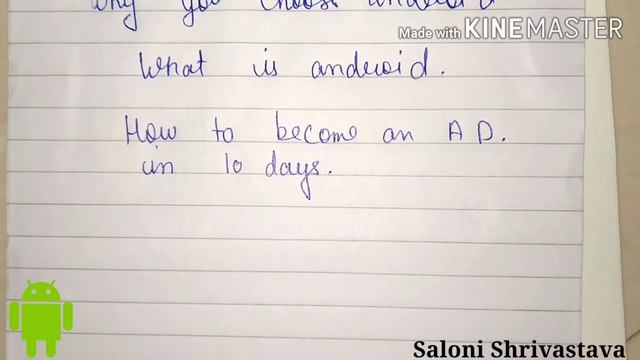 why you choose android
Made with KINEMASTER
What is android.
How to become an A D.
in 10 days.
Saloni Shrivastava